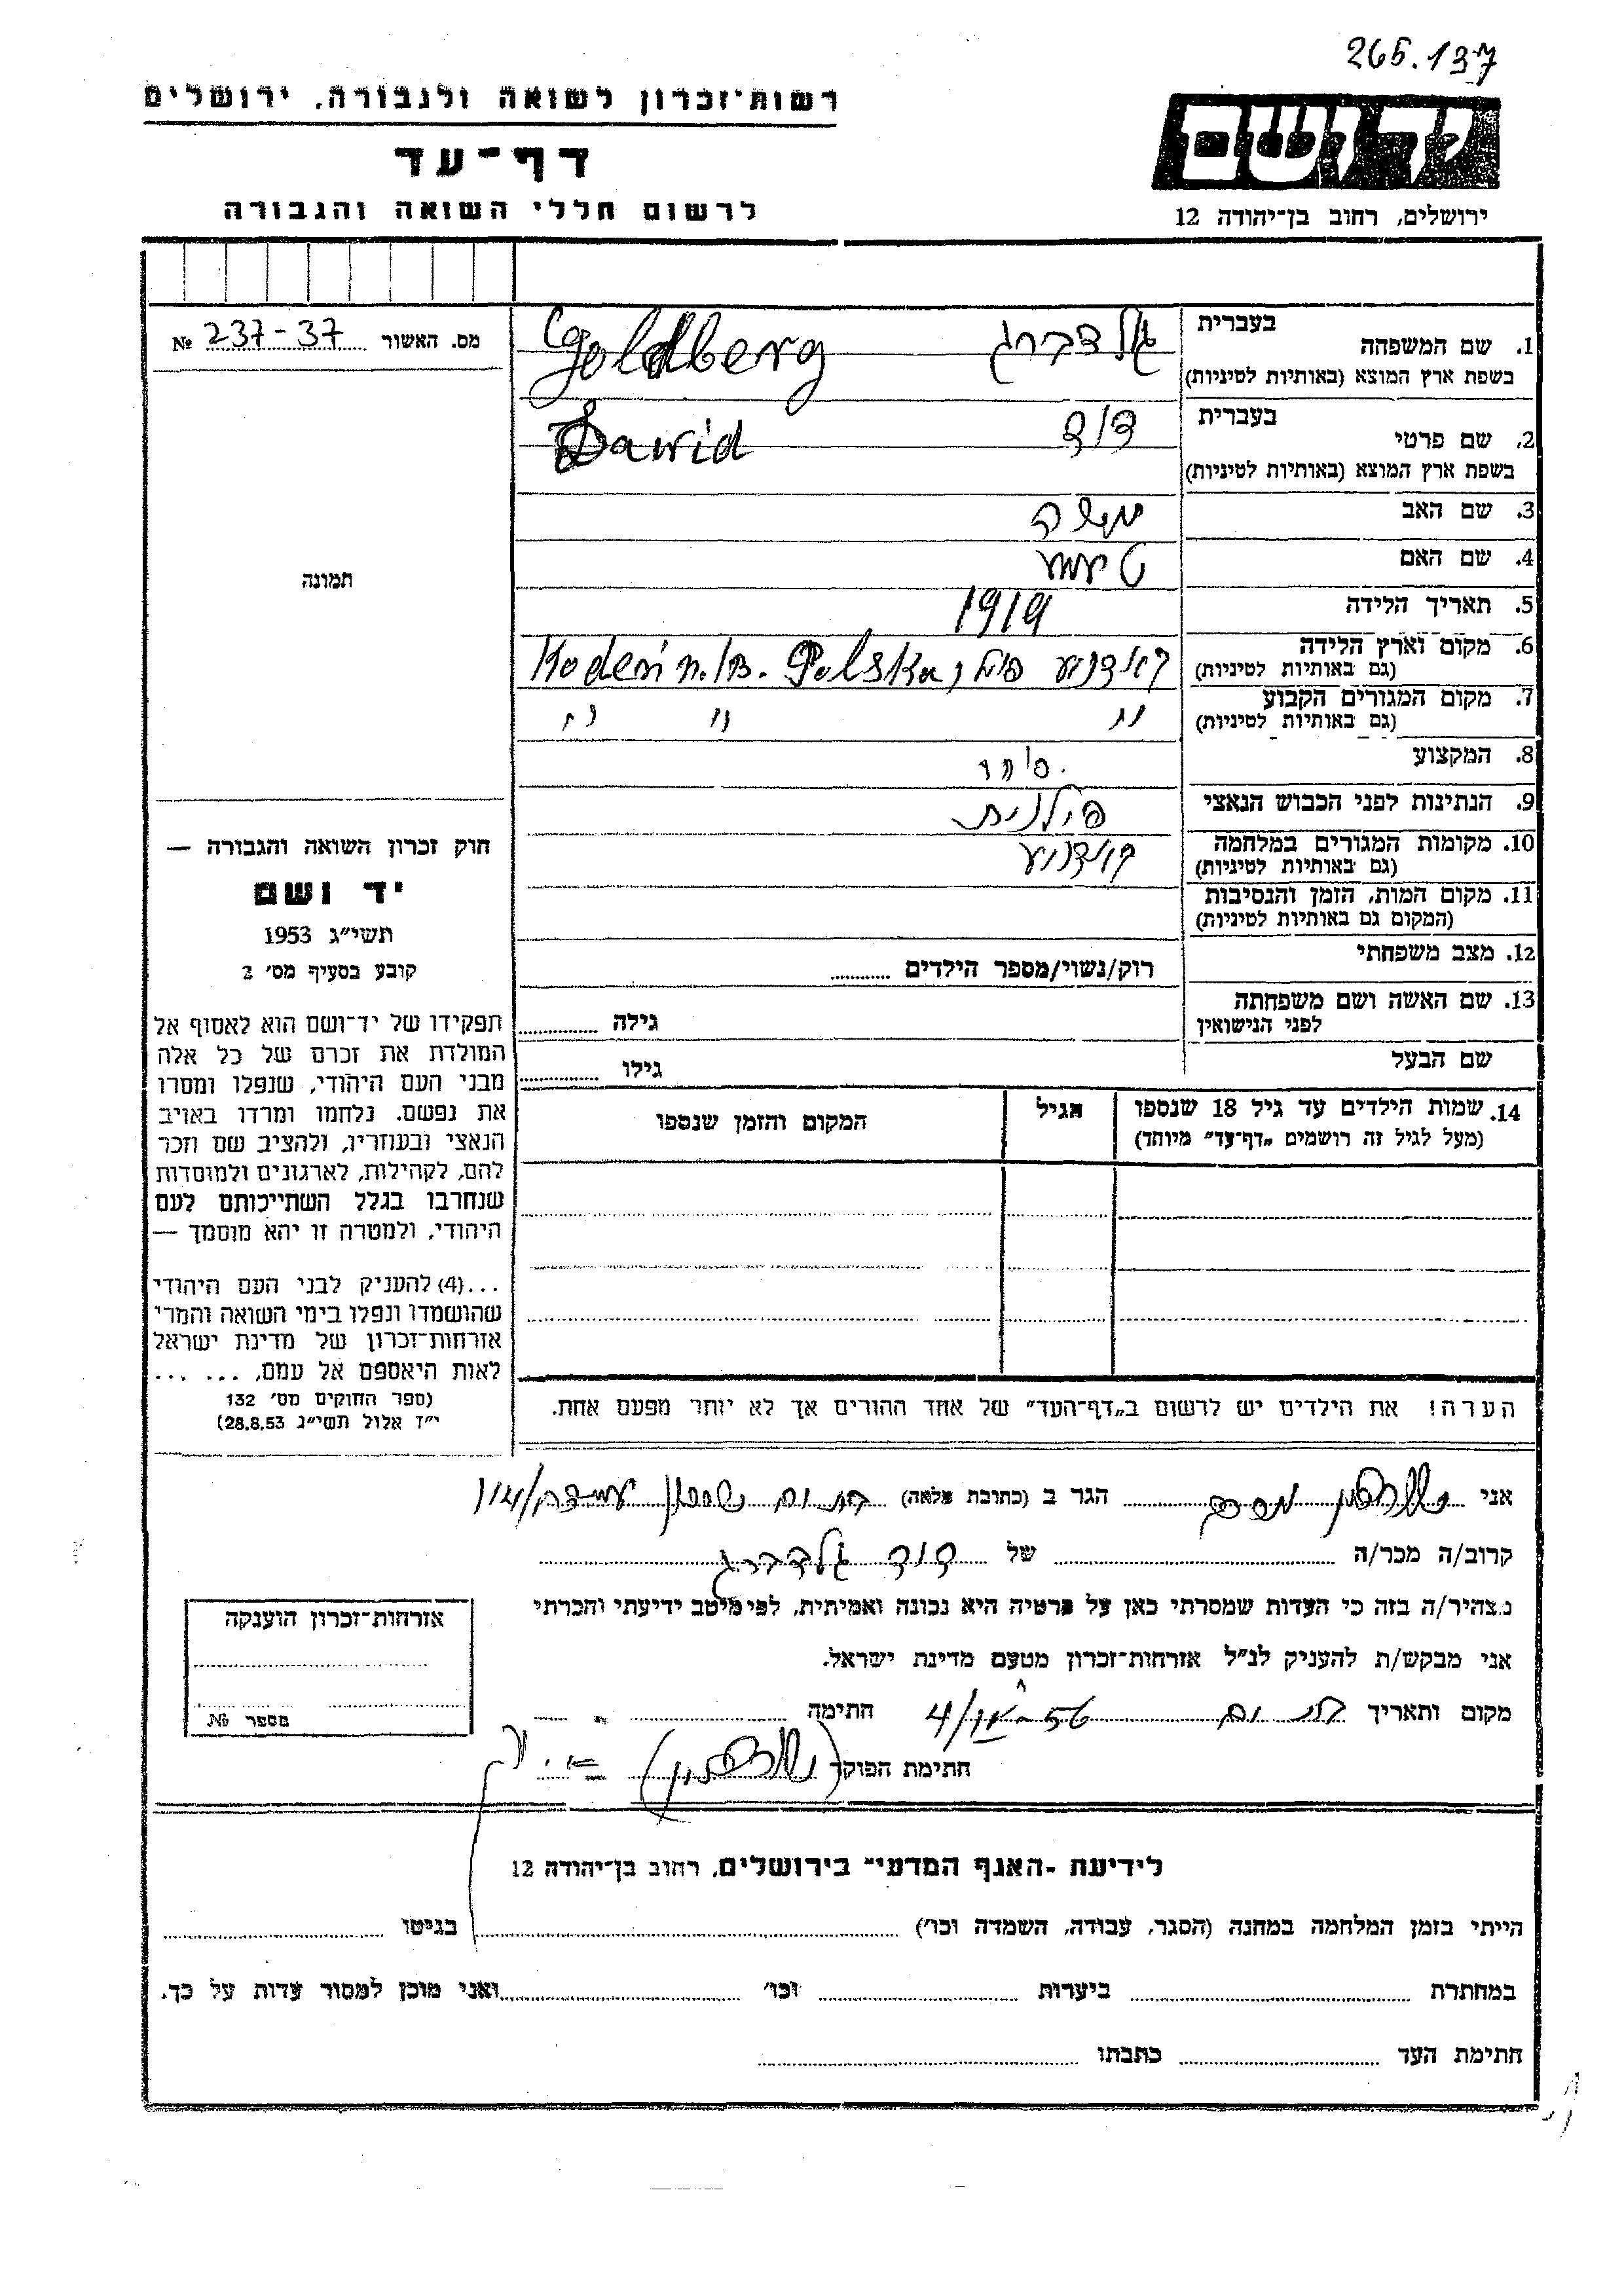 265.137
רשות־זכרון לשואה ולגבורה, ירושלים
דף־עד
לרשום חללי השואה והגבורה
יד ושם
ירושלים, רחוב בן־יהודה 12
מס. האשור 237-37 №
תמונה
חוק זכרון השואה והגבורה —
יד ושם
תשי״ג 1953
קובע בסעיף מס׳ 2
תפקידו של יד־ושם הוא לאסוף אל
המולדת את זכרם של כל אלה
מבני העם היהודי, שנפלו ומסרו
את נפשם, נלחמו ומרדו באויב
הנאצי ובעוזריו, ולהציב שם וזכר
להם, לקהילות, לארגונים ולמוסדות
שנחרבו בגלל השתייכותם לעם
היהודי, ולמטרה זו יהא מוסמך —
...(4) להעניק לבני העם היהודי
שהושמדו ונפלו בימי השואה והמרי
אזרחות־זכרון של מדינת ישראל
לאות היאספם אל עמם, ... ...
(ספר החוקים מס׳ 132
י״ד אלול תשי״ג 28.8.53)
בעברית
1. שם המשפחה גולדברג Goldberg
בשפת ארץ המוצא (באותיות לטיניות)
בעברית
2. שם פרטי דוד Dawid
בשפת ארץ המוצא (באותיות לטיניות)
3. שם האב משה
4. שם האם
5. תאריך הלידה 1919
6. מקום וארץ הלידה קודניע Kodeń n/B. Polska
(גם באותיות לטיניות)
7. מקום המגורים הקבוע " " "
(גם באותיות לטיניות)
8. המקצוע סוחר
9. הנתינות לפני הכבוש הנאצי פולנית
10. מקומות המגורים במלחמה קודניע
(גם באותיות לטיניות)
11. מקום המות, הזמן והנסיבות
(המקום גם באותיות לטיניות)
12. מצב משפחתי רוק/נשוי/מספר הילדים
13. שם האשה ושם משפחתה גילה
לפני הנישואין
שם הבעל גילו
14. שמות הילדים עד גיל 18 שנספו הגיל המקום והזמן שנספו
(מעל לגיל זה רושמים „דף־עד״ מיוחד)
הערה! את הילדים יש לרשום ב„דף־העד״ של אחד ההורים אך לא יותר מפעם אחת.
אני הגר ב (כתובת מלאה) בת ים
קרוב/ה מכר/ה של דוד גולדברג
מצהיר/ה בזה כי העדות שמסרתי כאן על פרטיה היא נכונה ואמיתית, לפי מיטב ידיעתי והכרתי
אני מבקש/ת להעניק לנ״ל אזרחות־זכרון מטעם מדינת ישראל.
מקום ותאריך בת ים חתימה
חתימת הפוקד
אזרחות־זכרון הוענקה
מספר №
לידיעת „האגף המדעי״ בירושלים, רחוב בן־יהודה 12
הייתי בזמן המלחמה במחנה (הסגר, עבודה, השמדה וכו׳) בגיטו
במחתרת ביערות וכו׳ ואני מוכן למסור עדות על כך.
חתימת העד כתבתו